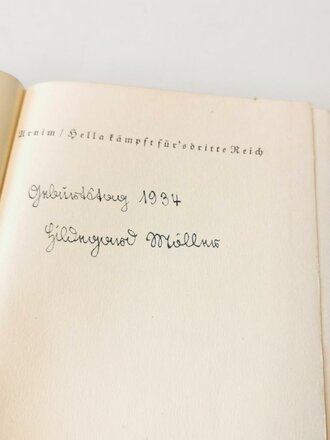 Arnim / Hella kämpft für's dritte Reich
Geburtstag 1934
Hildegard Möller